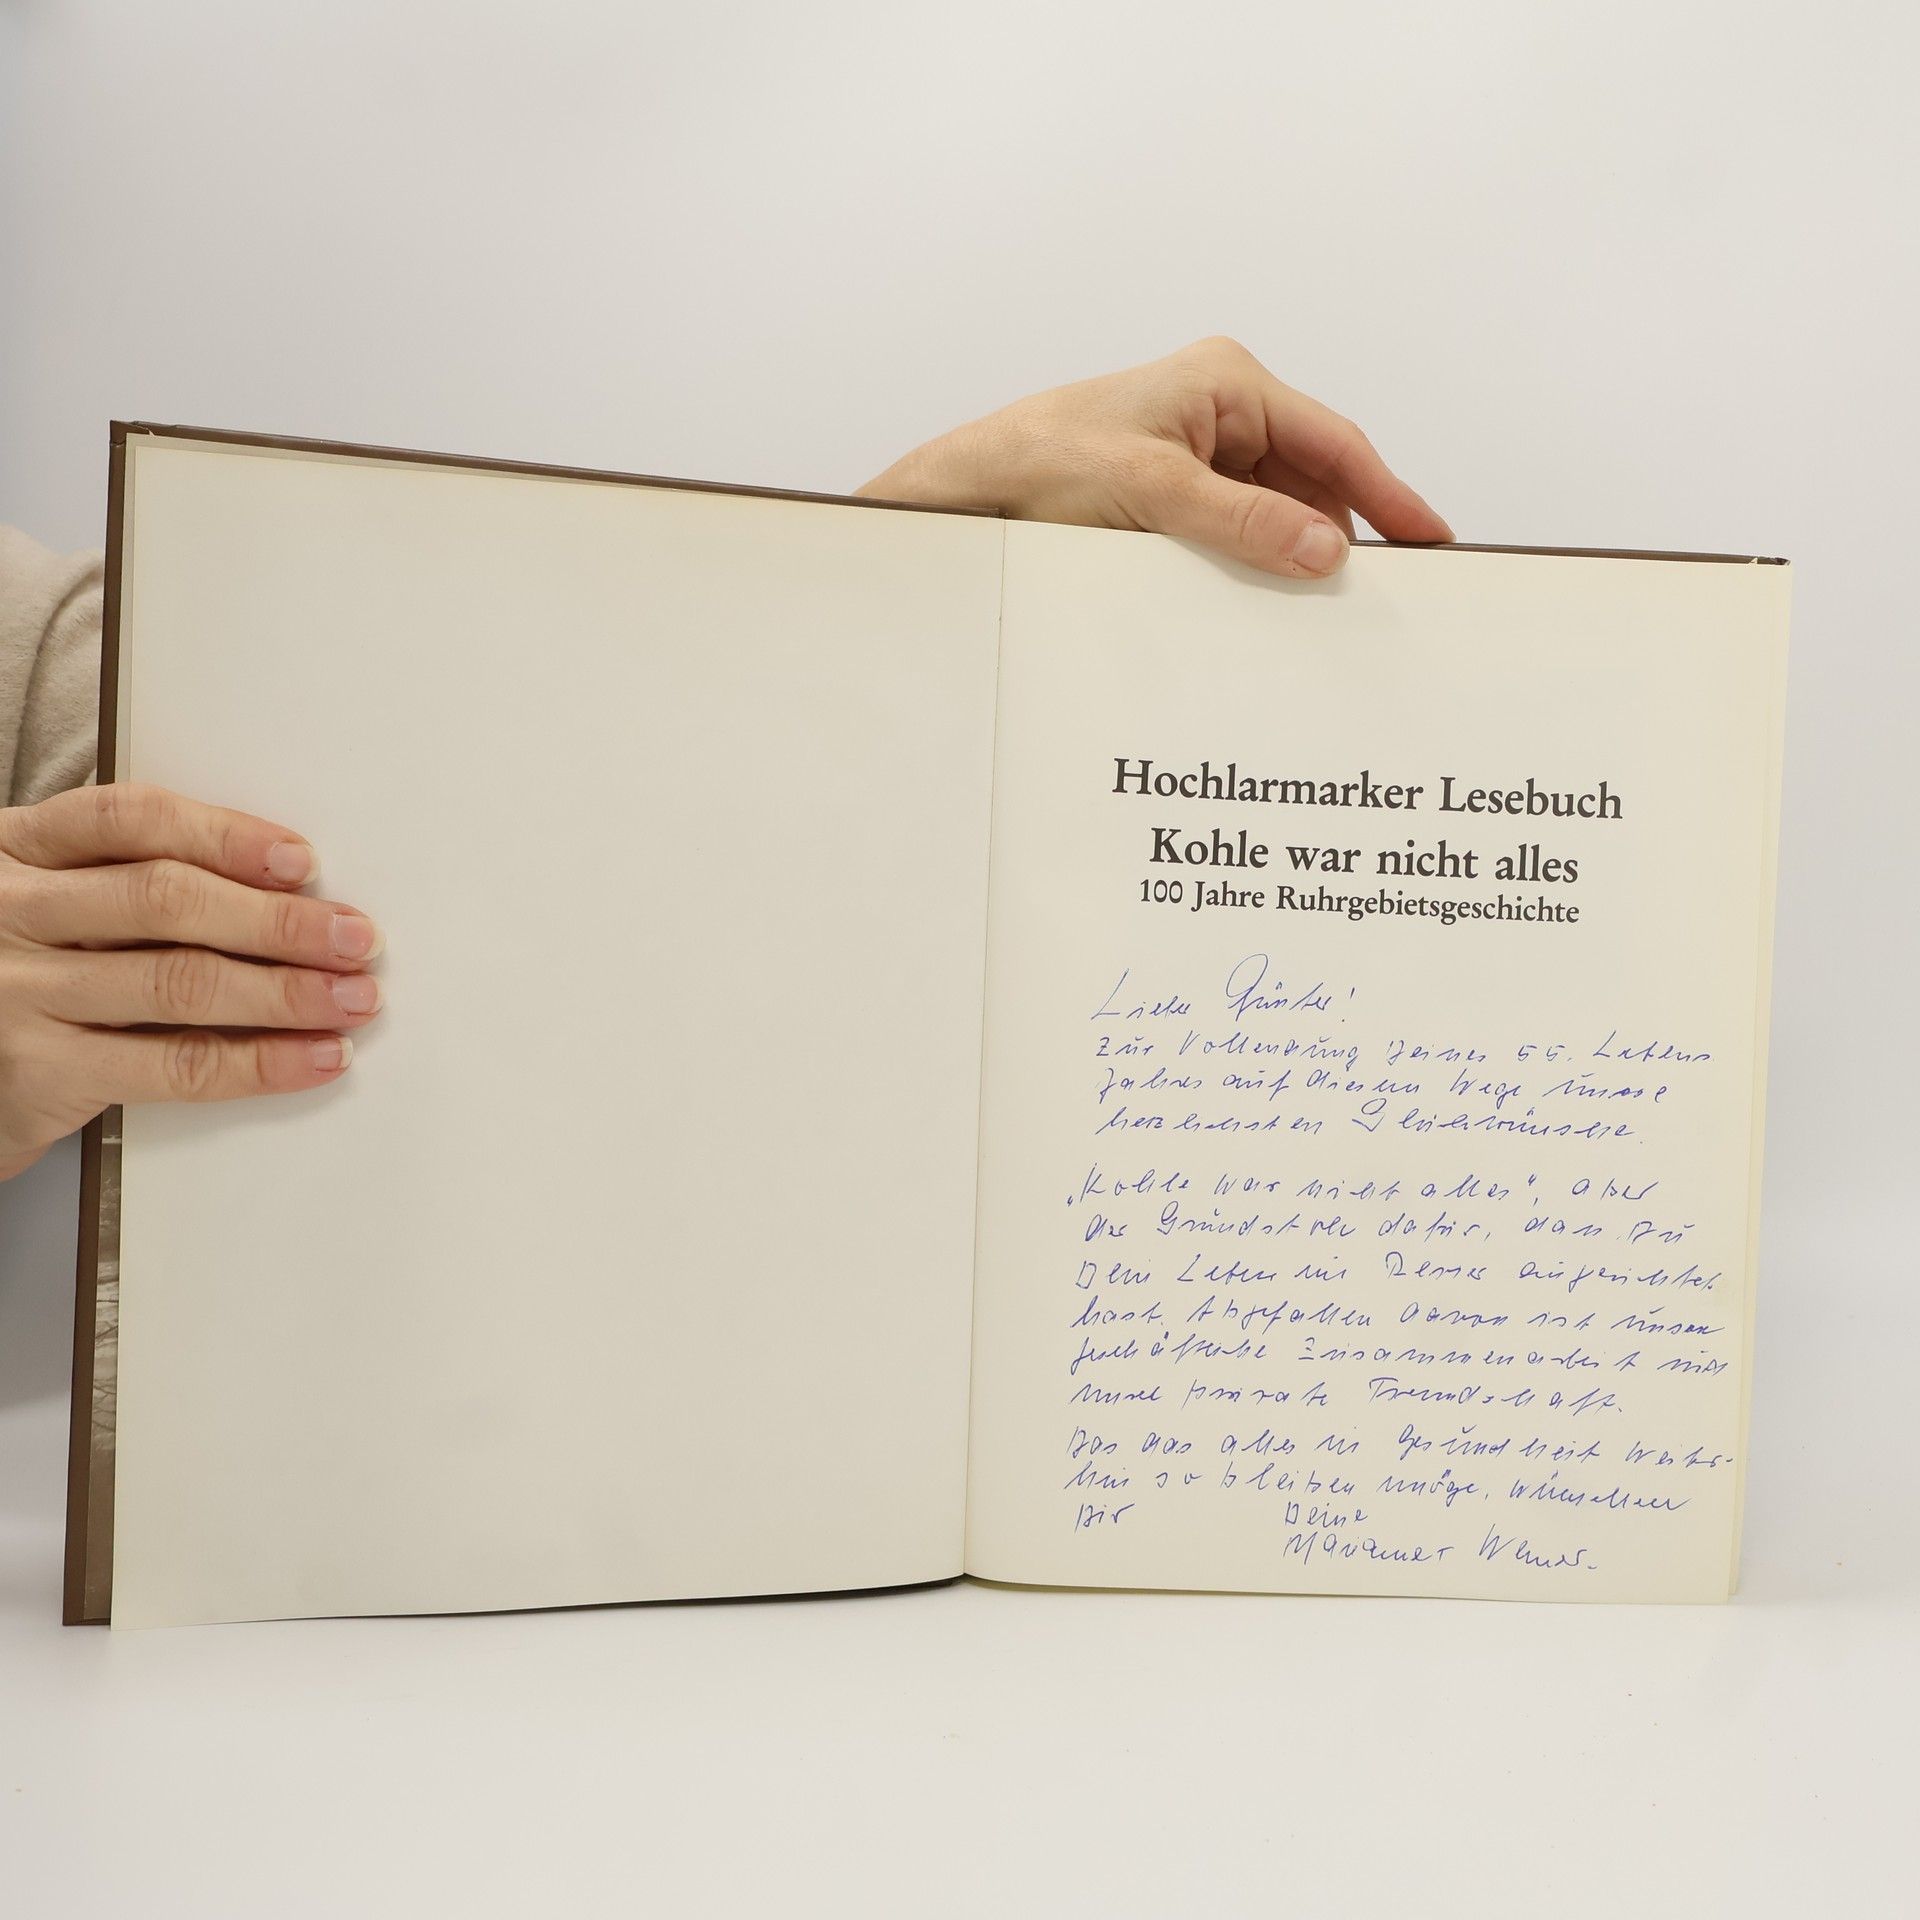 Hochlarmarker Lesebuch
Kohle war nicht alles
100 Jahre Ruhrgebietsgeschichte
Lieber Günter!
Zur Vollendung Deines 55. Lebens
Jahres auf diesem Wege unsere
herzlichsten Glückwünsche.
„Kohle war nicht alles", aber
der Grundstock dafür, dass Du
Dein Leben im Revier eingerichtet
hast. Abgefallen davon ist unsere
geschäftliche Zusammenarbeit und
unsere private Freundschaft.
Das das alles in Gesundheit weiter-
hin so bleiben möge, wünschen
Dir Deine
Werner.